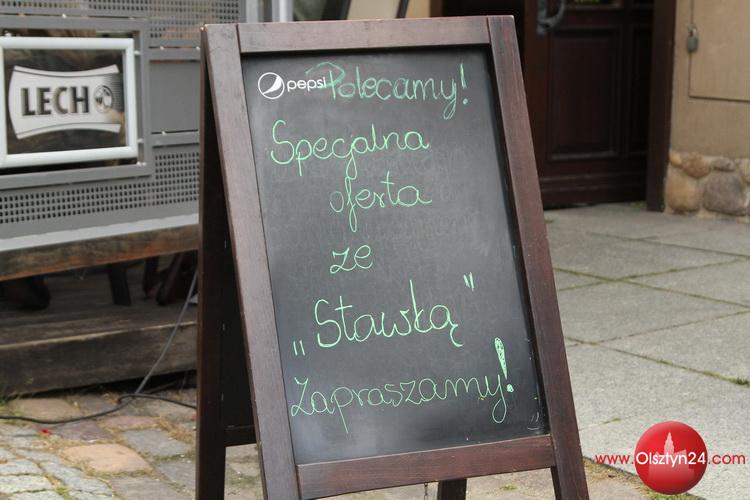 LECH
pepsi Polecamy!
Specjalna
oferta
ze
„Stawką"
Zapraszamy!
www.Olsztyn24.com